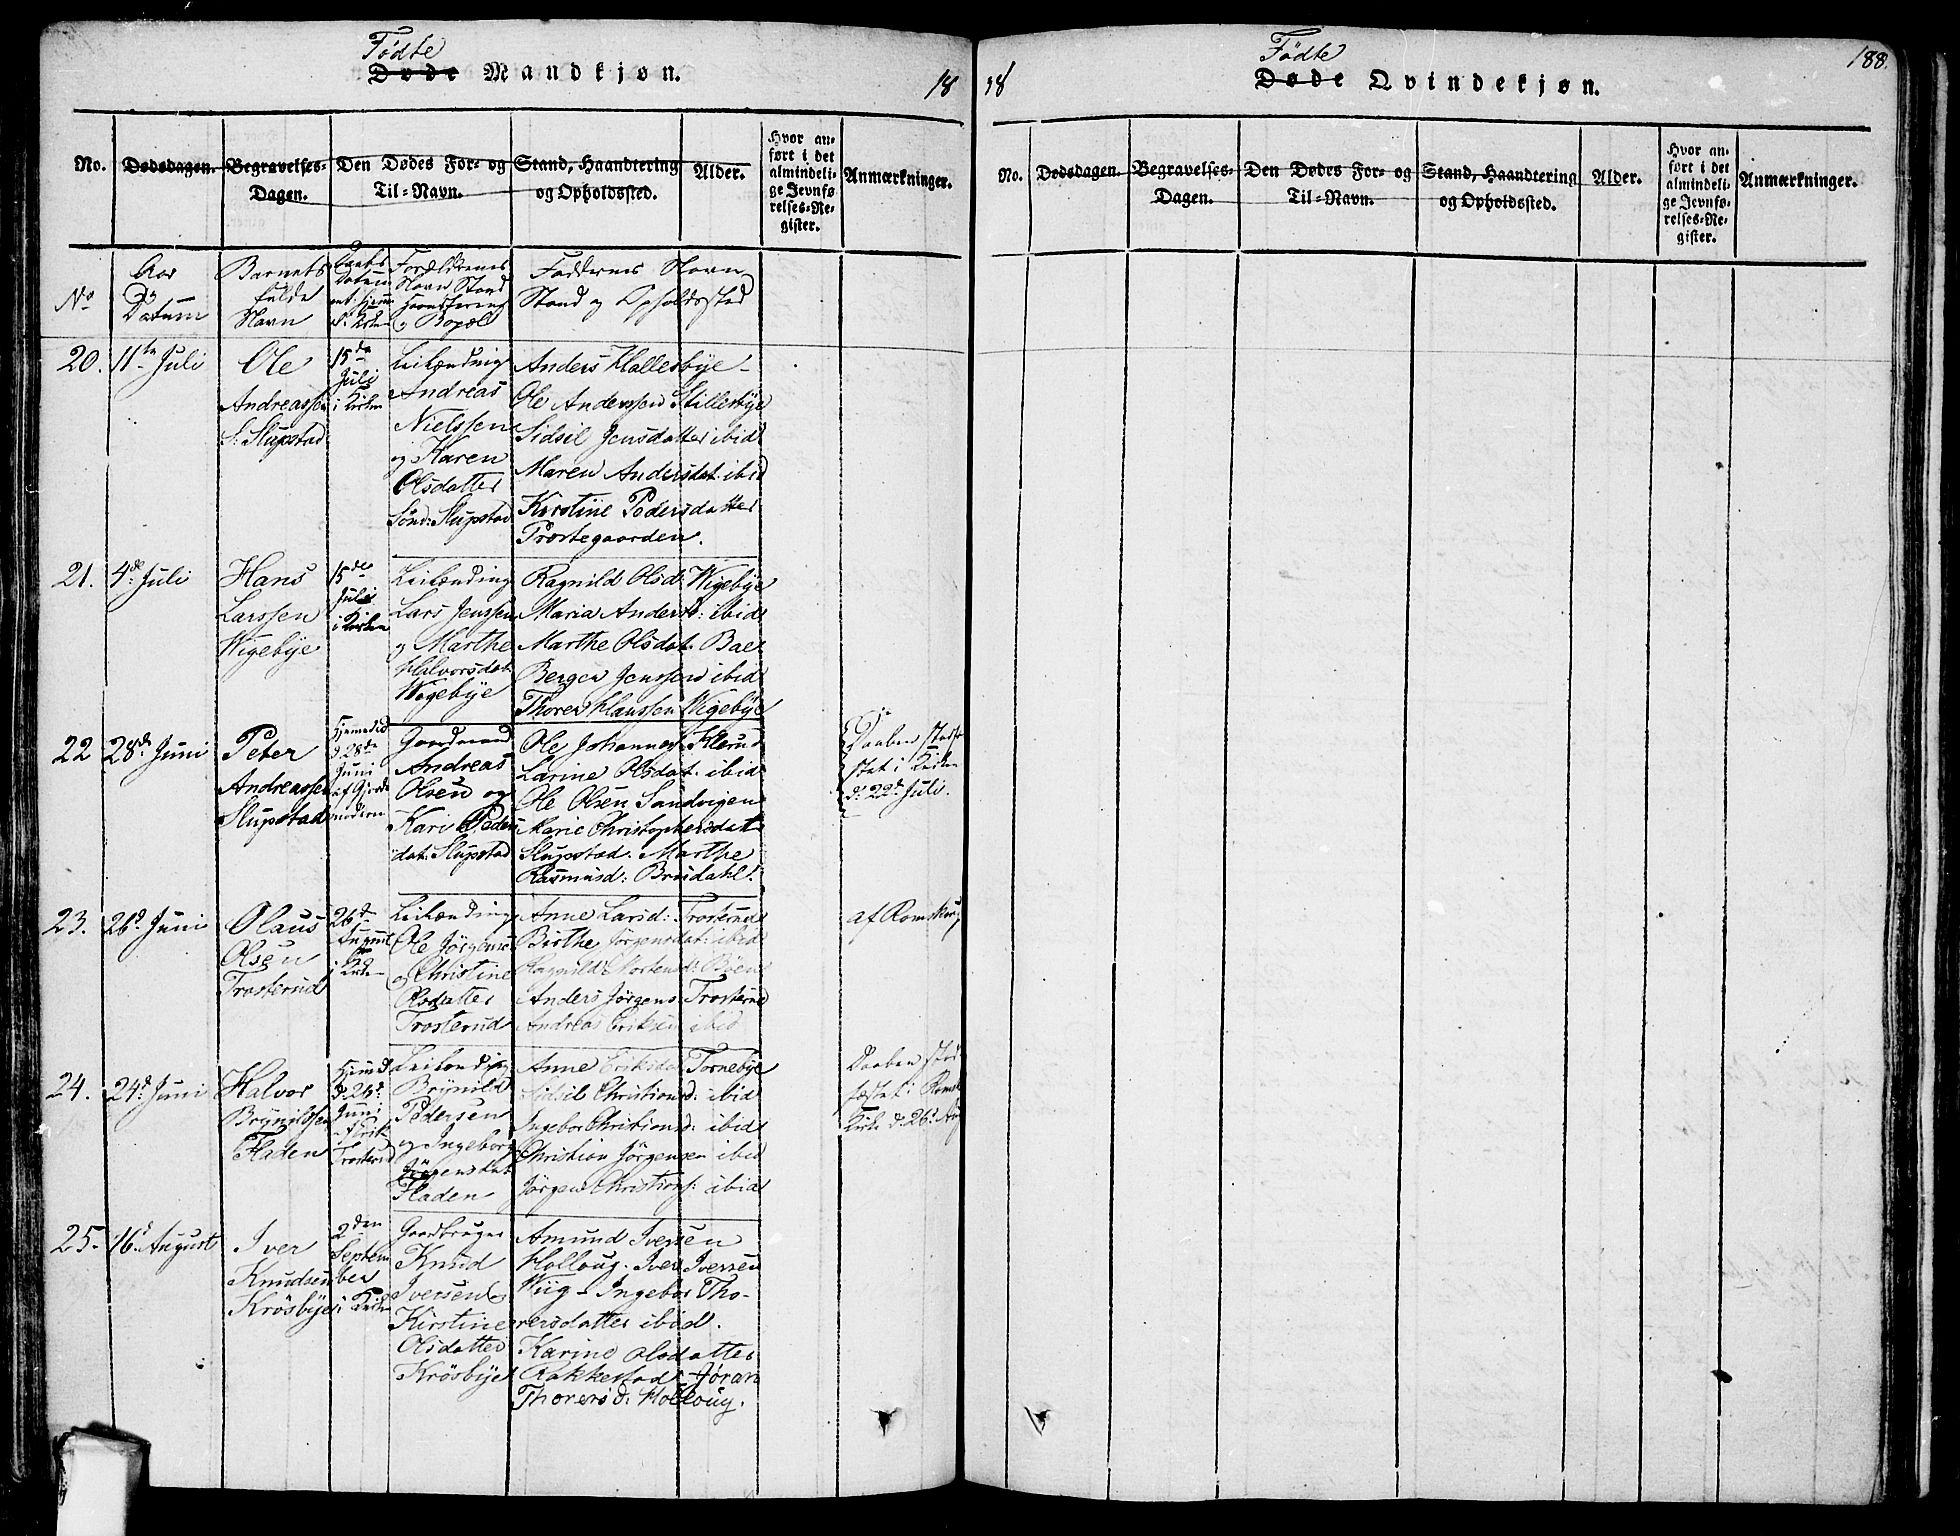 Fødte
Døde Mandkjøn.
18
No.
Dødsdagen.
Begravelses-
Dagen.
Den Dødes For- og
Til-Navn.
Stand, Haandtering
og Opholdssted.
Alder.
Hvor an-
ført i det
almindeli-
ge Jevnfø-
relses-Re-
gister.
Anmærkninger.
No
Aar
og
Datum
Barnets
fulde
Navn
Daabs
Datum
Forældrenes
Navn Stand
Haandtering
og Bopæl
Faddernes Navn
Stand og Opholdssted
20.
11te Juli
Ole
Andreassen
S: Slupstad
15de
Juli
i Kirken
Leilænding
Andreas
Nielssen
og Karen
Olsdatter
Sønd: Slupstad
Anders Hallesbye -
Ole Anderssen Stillesbye
Sidsil Jensdatter ibid
Maren Andersdat: ibid
Kirstine Pedersdatter
Præstegaarden.
21.
4de Juli
Hans
Larssen
Wigebye
15de
Juli
i Kirken
Leilænding
Lars Jenssen
og Marthe
Halvorsdat
Wigebye
Ragnild Olsd: Wigebye
Maria Andersd: ibid
Marthe Olsdat. Bae
Berger Jenssen ibid
Thorer Hanssen Wigebye
22
28de Juni
Peter
Andreassen
Slupstad
Hjemedøb
d 28de
Juni
af Gjorde
moderen
Gaardmand
Andreas
Olsen og
Kari Peders
dat: Slupstad
Ole Johannes: Flerud
Larine Olsdat: ibid
Ole Olsen Sandvigen
Marie Christophersdatt
Slupstad. Marthe
Rasmusd: Brudahl.
Daaben stadf
stet i Kirken
d: 22de Juli.
23.
26d Juni
Olaus
Olsen
Trosterud
26d
August
i Kirken
Leilænding
Ole Jörgensen
og Christine
Olsdatter
Trosterud
Anne Larsd: Trosterud
Birthe Jørgensdat: ibid
Ragnild Mortensd: Böen
Anders Jørgens: Trosterud
Andreas Eriksen ibid
af Romskoug
24.
24d Juni
Halvor
Brynildsen
Fladen
Hjemd
d. 24d
Juni
af Erik
Trosterud
Leilænding
Brynild
Pedersen
og Ingeborg
Jörgensdat
Fladen
Anne Eriksdat Tornebye
Sidsil Christiansd: ibid
Ingebor Christiansd: ibid
Christian Jörgensen ibid
Jörgen Christians: ibid
Daaben stad
fæstet i Romsk
Kirke d: 26d Aug
25.
16d August
Iver
Knudsen
Krösbye
2den
Septem
ber
i Kirken
Gaardbruger
Knud
Iversen og
Kirstine
Olsdatter
Krösbye
Amund Iversen
Holloug. Iver Iversen
Wiig - Ingebor Tho-
rersdatter ibid.
Karine Olsdatter
Rakkestad - Jøran
Thorersd: Holloug.
18
Fødte
Døde Qvindekjøn.
188.
No.
Dødsdagen.
Begravelses-
Dagen.
Den Dødes For- og
Til-Navn.
Stand, Haandtering
og Opholdssted.
Alder.
Hvor an-
ført i det
almindeli-
ge Jevnfø-
relses-Re-
gister.
Anmærkninger.